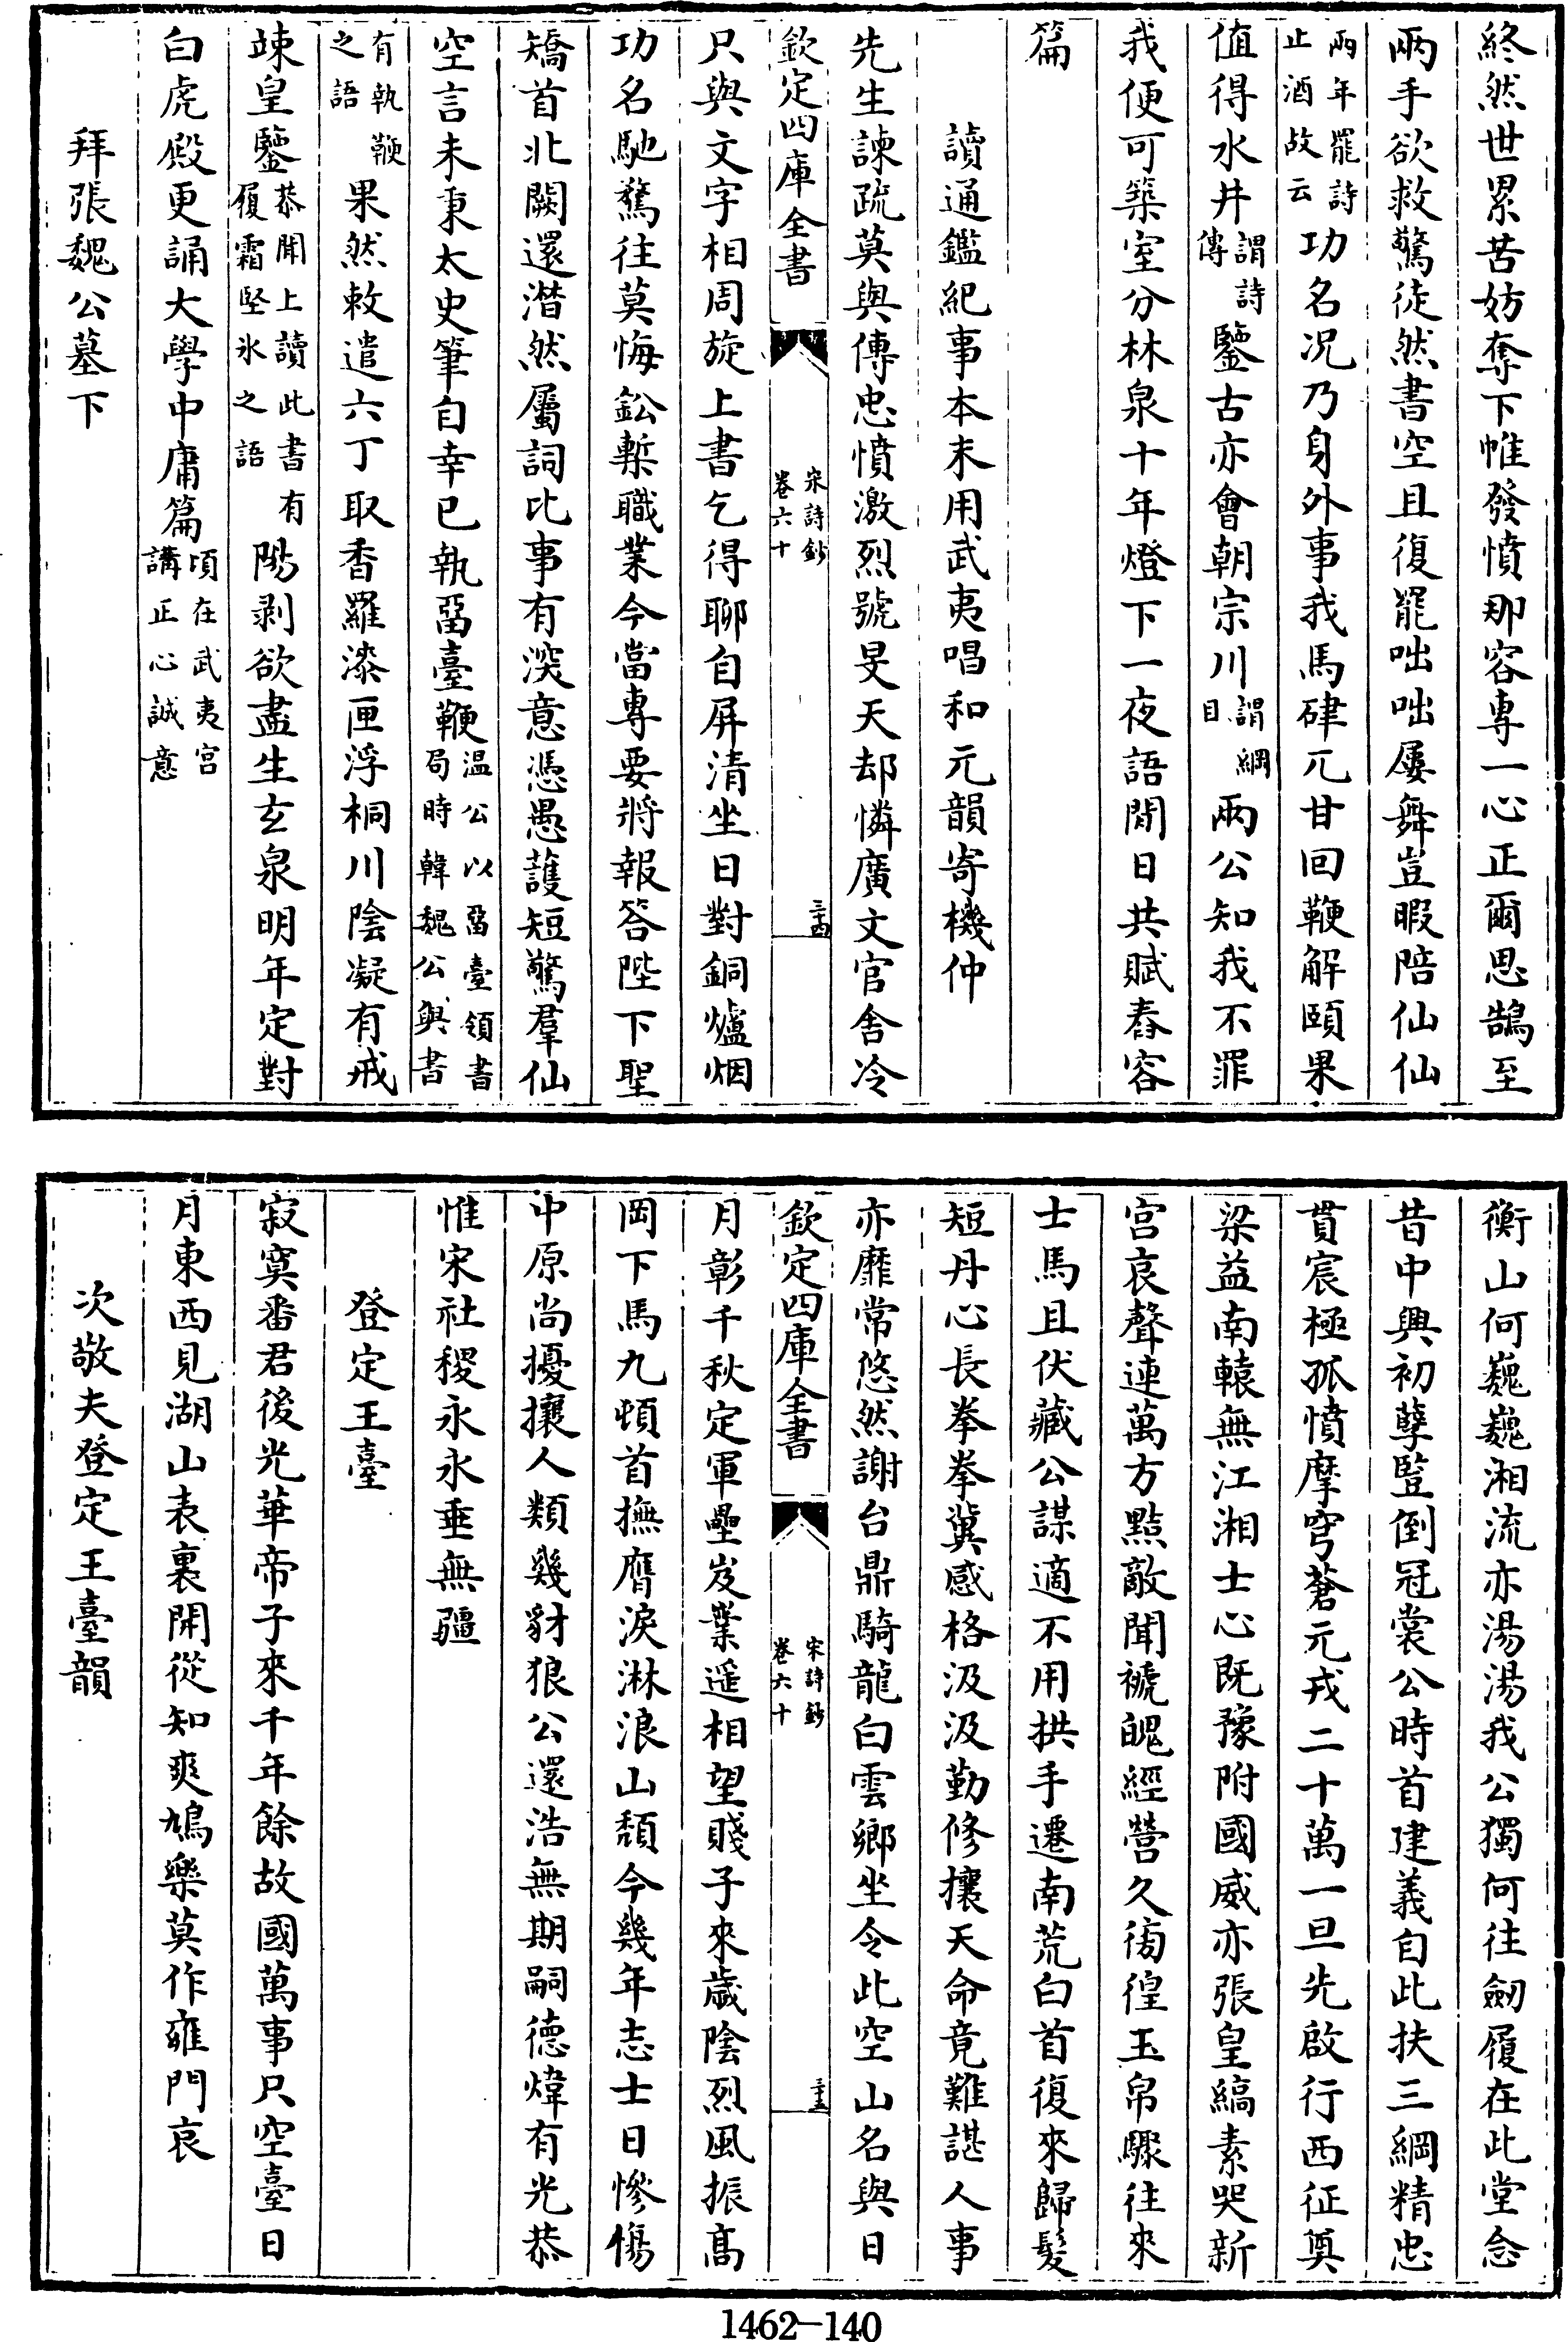 終然世累苦妨奪下帷發憤那容專一心正爾思鵠至
兩手欲救驚徒然書空且復罷咄咄屢舞豈暇陪仙仙
兩年罷詩止酒故云功名况乃身外事我馬硉兀甘回鞭解頤果
值得水井謂詩傳鑒古亦會朝宗川謂綱目兩公知我不罪
我便可築室分林泉十年燈下一夜語閒日共賦春容
篇
讀通鑑紀事本末用武夷唱和元韻寄機仲
先生諫疏莫與傳忠憤激烈號旻天却憐廣文官舍冷
欽定四庫全書
宋詩鈔
卷六十
三十四
只與文字相周旋上書乞得聊自屏清坐日對銅爐烟
功名馳騖往莫悔鈆槧職業今當專要將報答陛下聖
矯首北闕還潸然屬詞比事有深意憑愚護短驚羣仙
空言未秉太史筆自幸已執留臺鞭温公以留臺領書局時韓魏公與書
有執鞭之語果然敕遣六丁取香羅漆匣浮桐川陰凝有戒
竦皇鑒恭聞上讀此書有履霜堅氷之語陽剥欲盡生玄泉明年定對
白虎殿更誦大學中庸篇頃在武夷宫講正心誠意
拜張魏公墓下
衡山何巍巍湘流亦湯湯我公獨何往劒履在此堂念
昔中興初孽豎倒冠裳公時首建義自此扶三綱精忠
貫宸極孤憤摩穹蒼元戎二十萬一旦先啟行西征奠
梁益南轅無江湘士心既豫附國威亦張皇縞素哭新
宫哀聲連萬方黠敵聞褫魄經營久徬徨玉帛驟往來
士馬且伏藏公謀適不用拱手遷南荒白首復來歸髮
短丹心長拳拳冀感格汲汲勤修攘天命竟難諶人事
亦靡常悠然謝台鼎騎龍白雲鄉坐令此空山名與日
欽定四庫全書
宋詩鈔
卷六十
三十五
月彰千秋定軍壘岌嶪遥相望賤子來歲陰烈風振髙
岡下馬九頓首撫膺淚淋浪山頹今幾年志士日慘傷
中原尚擾攘人類幾豺狼公還浩無期嗣德煒有光恭
惟宋社稷永永垂無疆
登定王臺
寂寞番君後光華帝子來千年餘故國萬事只空臺日
月東西見湖山表裏開從知爽鳩樂莫作雍門哀
次敬夫登定王臺韻
1462-140